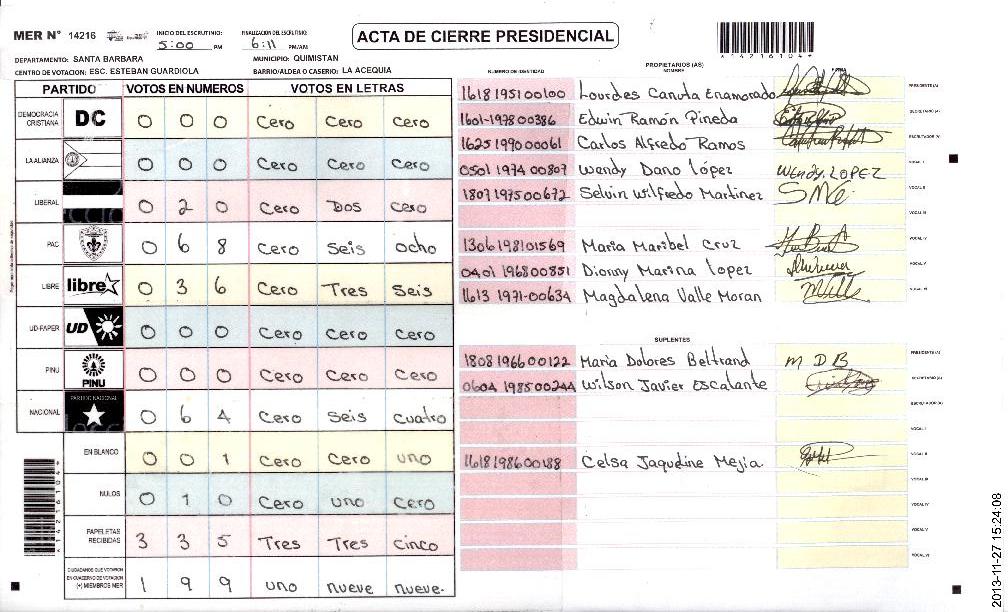 MER N° 14216
INICIO DEL ESCRUTINIO: 5:00 PM
FINALIZACION DEL ESCRUTINIO: 6:11 PM/AM
ACTA DE CIERRE PRESIDENCIAL
*14216104*
DEPARTAMENTO: SANTA BARBARA
MUNICIPIO: QUIMISTAN
CENTRO DE VOTACION: ESC. ESTEBAN GUARDIOLA
BARRIO/ALDEA O CASERIO: LA ACEQUIA
PARTIDO VOTOS EN NUMEROS VOTOS EN LETRAS
DEMOCRACIA CRISTIANA DC 0 0 0 Cero Cero Cero
LA ALIANZA 0 0 0 Cero Cero Cero
LIBERAL 0 2 0 Cero Dos cero
PAC 0 6 8 Cero Seis ocho
LIBRE libre 0 3 6 Cero Tres Seis
UD-FAPER UD 0 0 0 Cero Cero Cero
PINU PINU 0 0 0 Cero Cero Cero
NACIONAL PARTIDO NACIONAL 0 6 4 Cero Seis cuatro
EN BLANCO 0 0 1 Cero Cero uno
NULOS 0 1 0 Cero uno Cero
PAPELETAS RECIBIDAS 3 3 5 Tres Tres cinco
CIUDADANOS QUE VOTARON EN CUADERNO DE VOTACION (+) MIEMBROS MER 1 9 9 uno nueve nueve.
*14216104*
NUMERO DE IDENTIDAD
PROPIETARIOS (AS)
NOMBRE
FIRMA
1618 1951 00100 Lourdes Canuta Enamorado PRESIDENTE (A)
1601-1978 00386 Edwin Ramón Pineda SECRETARIO (A)
1625 1990 00061 Carlos Alfredo Ramos ESCRUTADOR (A)
0501 1974 00807 Wandy Dano López WENDY. LOPEZ VOCAL I
1807 1975 00672 Selvin Wilfredo Martinez VOCAL II
VOCAL III
1306 1981 01569 Maria Maribel Cruz VOCAL IV
0401 1968 00851 Dionny Marina lopez VOCAL V
1613 1971-00634 Magdalena Valle Moran VOCAL VI
SUPLENTES
1808 1966 00122 Maria Dolores Beltrand M D B PRESIDENTE (A)
0604 1985 00244 Wilson Javier Escalante SECRETARIO (A)
ESCRUTADOR (A)
VOCAL I
1618 1986 00188 Celsa Jaqueline Mejia VOCAL II
VOCAL III
VOCAL IV
VOCAL V
VOCAL VI
2013-11-27 15:24:08